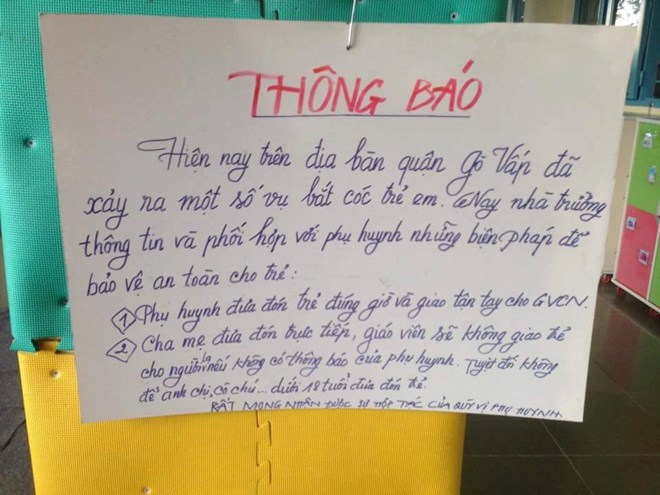 THÔNG BÁO
Hiện nay trên địa bàn quận Gò Vấp đã
xảy ra một số vụ bắt cóc trẻ em. Nay nhà trường
thông tin và phối hợp với phụ huynh những biện pháp để
bảo vệ an toàn cho trẻ:
1 Phụ huynh đưa đón trẻ đúng giờ và giao tận tay cho GVCN.
2 Cha mẹ đưa đón trực tiếp, giáo viên sẽ không giao trẻ
cho người lạ nếu không có thông báo của phụ huynh. Tuyệt đối không
để anh chị, cô chú... dưới 18 tuổi đưa đón trẻ.
RẤT MONG NHẬN ĐƯỢC SỰ HỢP TÁC CỦA QUÝ VỊ PHỤ HUYNH